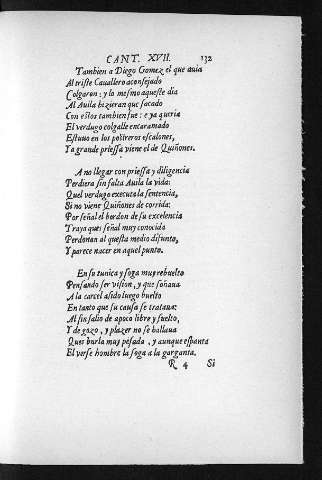 CANT. XVII. 132
Tambien a Diego Gomez el que auia
Al triste Cauallero aconsejado
Colgaron: y lo mesmo aqueste dia
Al Auila hizieran que sacado
Con estos tambien fue: e ya queria
El verdugo colgalle encaramado
Estuuo en los postreros escalones,
Ya grande priessa viene el de Quiñones.
A no llegar con priessa y diligencia
Perdiera sin falta Auila la vida:
Quel verdugo executa la sentencia,
Si no viene Quiñones de corrida:
Por señal el bordon de su excelencia
Traya ques señal muy conocida
Perdonan al questa medio difunto,
Y parece nacer en aquel punto.
En su tunica y soga muy rebuelto
Pensando ser vision, y que soñaua
A la carcel a sido luego buelto
En tanto que su causa se trataua:
Al fin salio de apoco libre y suelto,
Y de gozo, y plazer no se hallaua
Ques burla muy pesada, y aunque espanta
El verse hombre la soga a la garganta.
R 4 Si